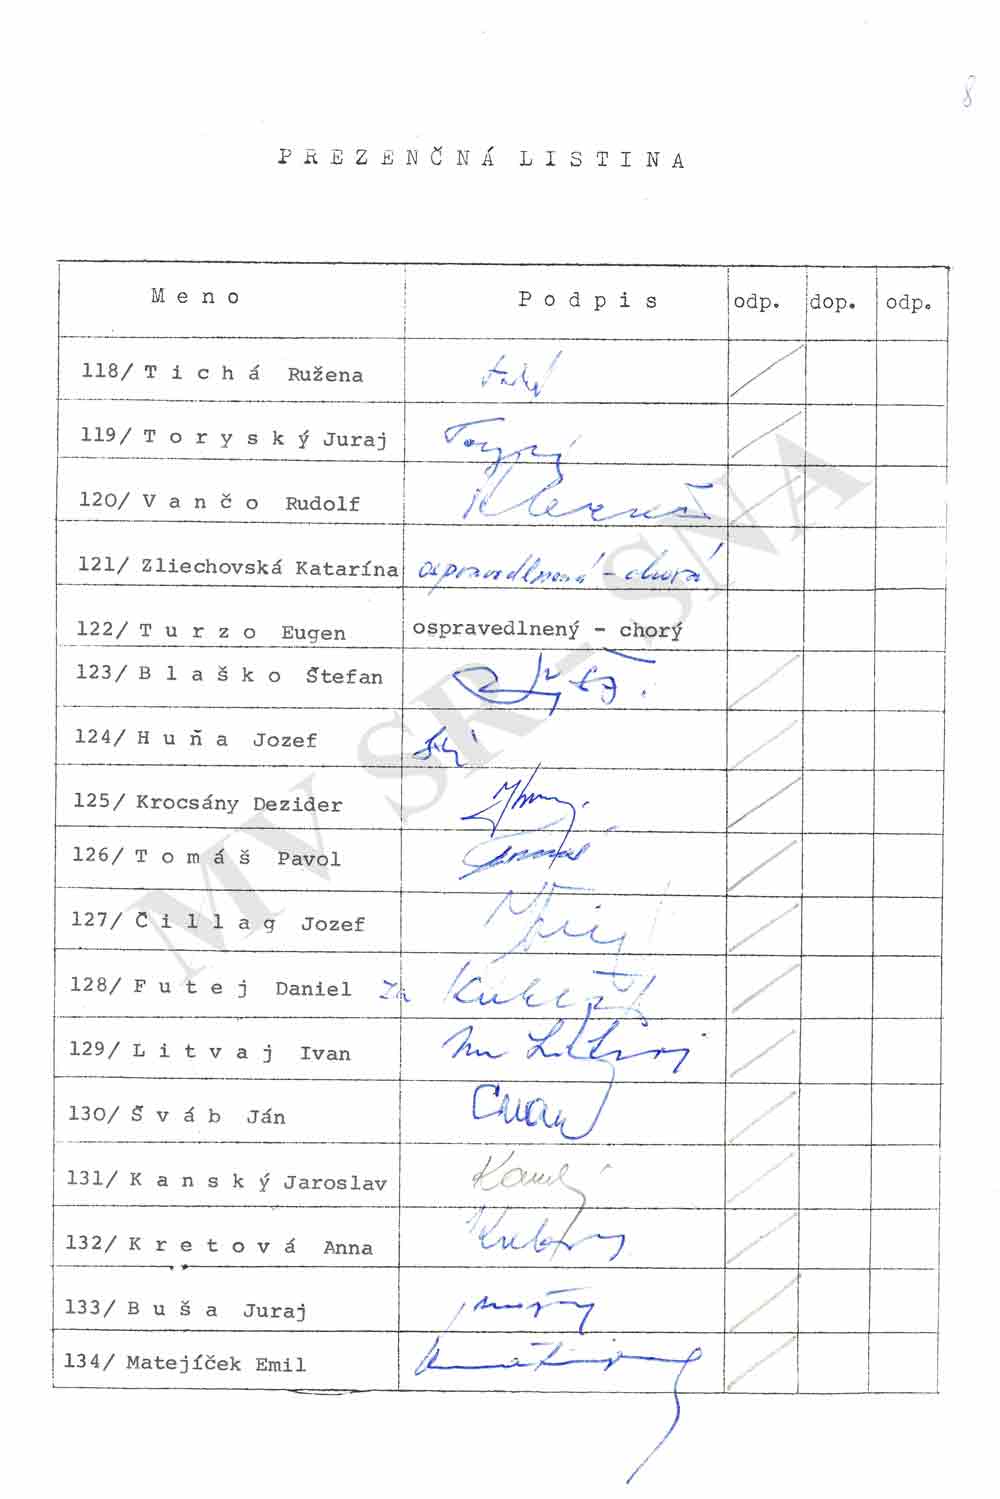 8
PREZENČNÁ LISTINA
Meno Podpis odp. dop. odp.
118/ Tichá Ružena
119/ Toryský Juraj
120/ Vančo Rudolf
121/ Zliechovská Katarína ospravedlnená - chorá
122/ Turzo Eugen ospravedlnený - chorý
123/ Blaško Štefan
124/ Huňa Jozef
125/ Krocsány Dezider
126/ Tomáš Pavol
127/ Čillag Jozef
128/ Futej Daniel Za
129/ Litvaj Ivan
130/ Šváb Ján
131/ Kanský Jaroslav
132/ Kretová Anna
133/ Buša Juraj
134/ Matejíček Emil
MV SR - SNA